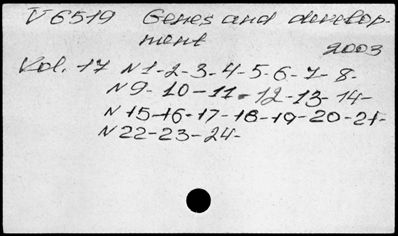 V6519 Genes and develop-
ment
2003
Vol. 17 N1-2-3-4-5-6-7-8-
N9-10-11-12-13-14-
N15-16-17-18-19-20-21-
N22-23-24-